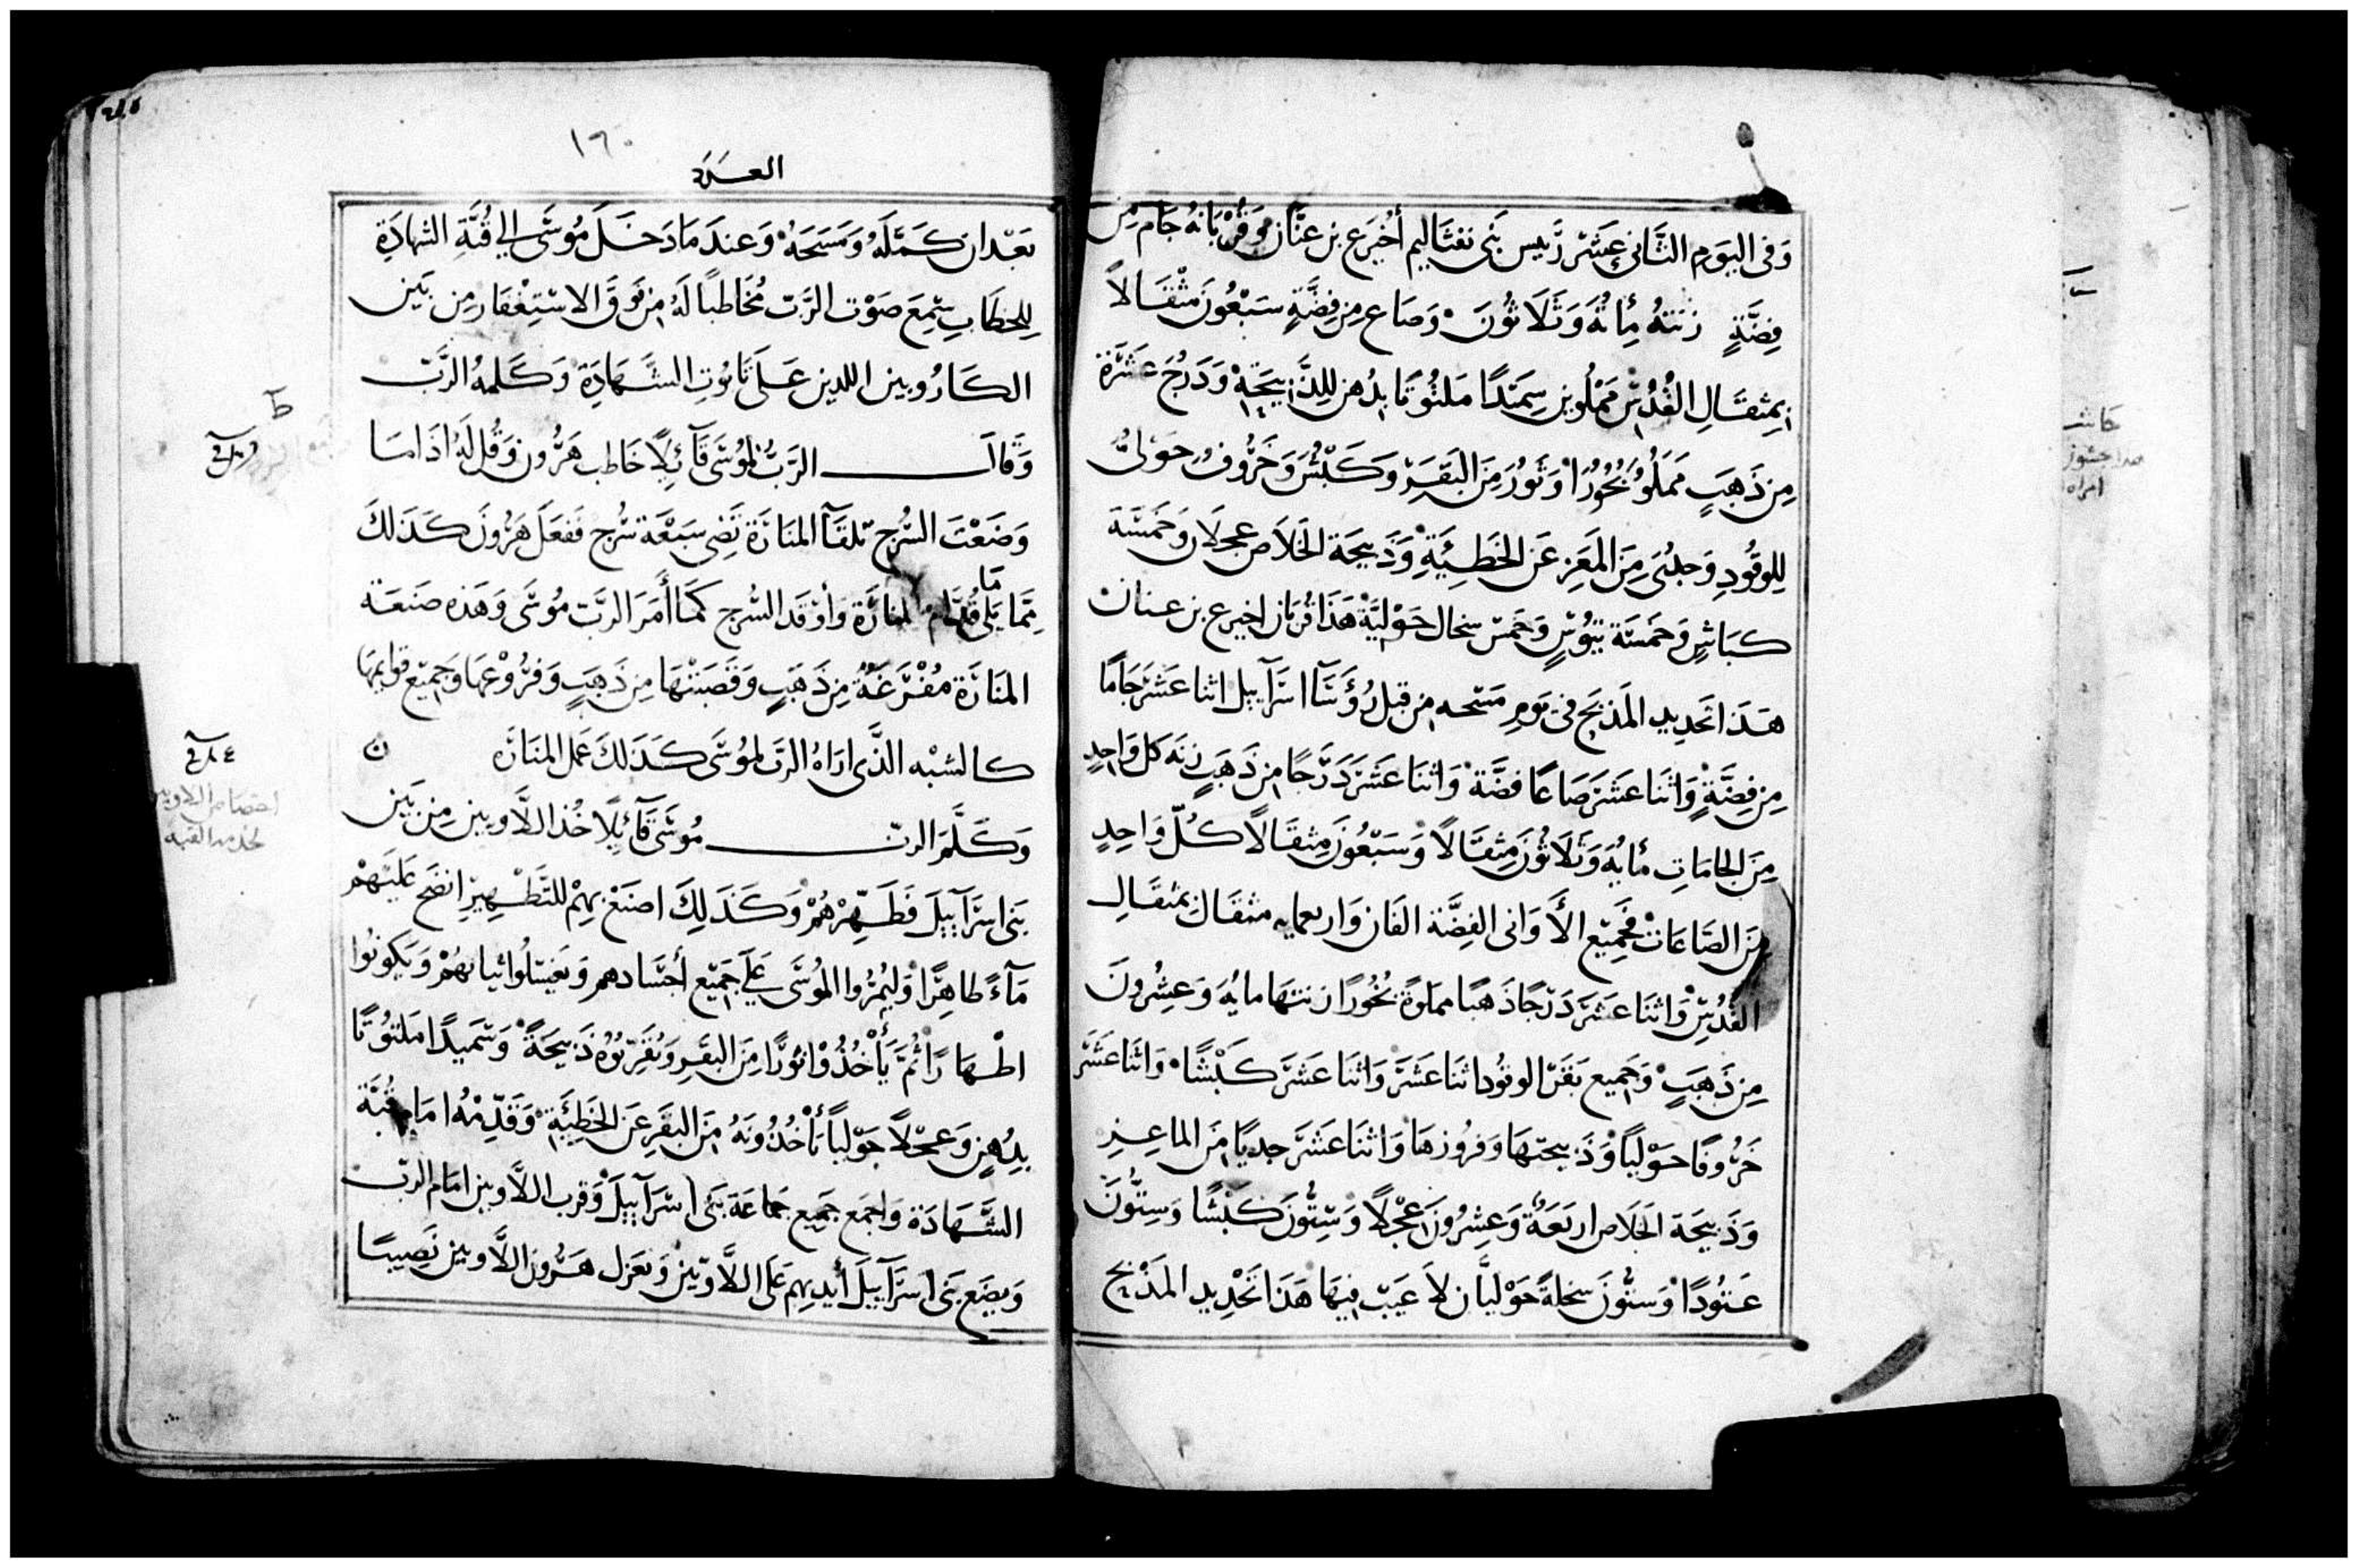 وَفى اليَوم الثَّانى عَشَرْ رَئيس بَنى نفثاليم أخيرَع بن عنَّان وَقُرْبَانهُ جَام مِن
فِضَّةٍ زنَتهُ مِأئةُ وَثَلَاثُونَ وَصَاع مِن فِضَّةٍ سَبْعُونَ مثْقَالاً
بمثقَالِ القُدُسْ مَمْلُوين سِمَندًا مَلتُوتَا بدُهن لِلذَّبيحَة وَدَرُجَ عَشَرَة
مِن ذَهَبٍ مَملُو بُخُورًا وَثَورُ مِنَ البَقَرِ وَكَبْشَ وَخَرُوفُ حَوْلىُّ
لِلوقُودِ وَجدْىَ مِنَ المَعَزِ عَن الخَطِيئَةِ وَذَبيحَة الخَلَاص عجلَان وَخَمسَة
كبَاشٍ وَخَمسَة تيُوسٍ وَخَمسْ سخال حَوْليَّة هَذَا قُربَان اخيرع بن عنان
هَذَا تَحديد المَذبَح فى يَومِ مَسْحه مِن قبل رُؤسَآ اسرَآييل اثنا عَشَرَ جَامًا
مِن فِضَّةٍ وَاثنَا عشَرَ صَاعًا فضَّة وَاثنَا عَشَرَ دَرَجًا مِن ذَهَبٍ زنَه كل وَاحِدٍ
مِنَ الجَامَاتِ مأيهُ وَثَلَاثُونَ مِثقَالًا وَسَبْعُونَ مِثقَالًا كُلّ وَاحِدٍ
مِنَ الصَّاعَات فجَمِيْع الأَوَانى الفِضَّة الفَان وَاربعمايه مثقَال بمثقَالِ
القُدُسْ وَاثنَا عَشَرَ دَرْجًا ذَهَبًا مملوة بُخُورًا زنتهَا مايهُ وَعِشرُونَ
مِن ذَهَبٍ وَجَميع بَقَر الوقُود اثنَا عَشَرَ وَاثنَا عَشَرَ كَبْشًا وَاثنَا عَشَرَ
خَرُوفًا حَوْليًا وَذَبيحتهَا وَفروزهَا وَاثنَا عَشَرَ جديًا مِنَ الماعِزِ
وَذَبيحَة الخَلَاص اربَعَةُ وَعِشرُونَ عِجْلًا وَسِتُّونَ كَبْشًا وَسِتُّونَ
عَتُودًا وَستُّونَ سَخلةً حَوْليَّان لاَ عَيبْ فِيهَا هَذَا تَحْدِيد المَذْبح
١٦٠
العَدَد
بَعْد ان كَمَّلَهُ وَمَسَحَهُ وَعندَ مَا دَخَلَ مُوسَى الى قُبَّةِ الشهادَةِ
لِلخطَابِ سَمِعَ صَوْت الرَّبّ مُخَاطبًا لَهُ مِن فَوقَ الاسْتِغْفَار مِن بَين
الكَارُوبين اللذين عَلَى تَابُوتِ الشَّهَادَةِ وَكَلمهُ الرَّبّ
وَقَالَ الرَّبُّ لمُوسَى قَآئِلًا خَاطب هَرُون وَقُل لَهُ اذَا مَا
وَضَعْتَ السُّرج تلقَآ المنَارَة تَضى سَبعَة سُرج فَفعَلَ هَرُونَ كَذَلكَ
مِمَّا يَلى مَا قُدَّام المنَارَة وَأوقَد السُّرج كمَا أمَرَ الرَّبّ مُوسَى وَهَذه صَنعَة
المَنَارَة مُفْرَغَةُ مِن ذَهَبٍ وَقَصَبَتْهَا مِن ذَهَبٍ وَفرُوْعهَا وَجَمِيْع قَوايمهَا
كالشبْه الذَّى ارَاهُ الرَّب لمُوسَى كَذَلكَ عَمل المنَارَة
وَكَلَّمَ الربّ مُوسَى قَآئِلًا خُذ اللَّاويين مِن بَين
بَنى اسرَآييلَ فَطَهِّرْهُمْ وَكَذَلِكَ اصنَعْ بِهمْ للتَّطْهِيرِ انضَح عَلَيهمْ
مَآءً طاهِرًا وَليُمرُّوا المُوسَى عَلَى جَمِيْع أجسَادهم وَيَغسلُوا ثيابهُمْ وَيَكونُوا
اطْهَارًا ثُمَّ يَأخُذُوا ثورًا مِنَ البقَرِ وَيُقَرِّبُوهُ ذَبيحَةً وَسَميدًا مَلتُوتًا
بِدُهنٍ وَعجْلًا حَوْليًا تأخُذُونَهُ مِنَ البَقَرِ عَن الخَطِيَّة وَقَدِّمْهُ امَام قُبَّة
الشَّهَادَة وَاجمَع جَميع جمَاعَة بَنى اسرَآييلَ وَقرب اللَّاويين امَام الربّ
وَيضَع بَنى اسرَآييلَ أيديهم عَلى اللَّاويّين وَيَعزل هَرُون اللَّاويين نَصِيبًا
اختصاص اللاويين
لخدمة القبه